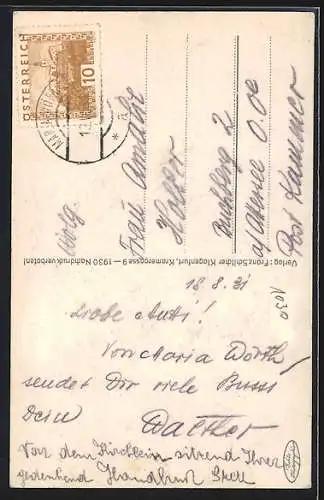 ÖSTERREICH
10
Wolg.
Frau Amalie
Holter
Buchberg 2
a/Attersee O.Oe
Post Kammer
Verlag: Franz Schilcher Klagenfurt, Kramergasse 9 — 1930 Nachdruck verboten!
1030
18.8.31
Liebe Anti!
Von Maria Wörth
sendet Dir viele Bussi
Dein
Walther
Vor dem Kirchlein sitzend Ihrer
gedenkend Handkuss